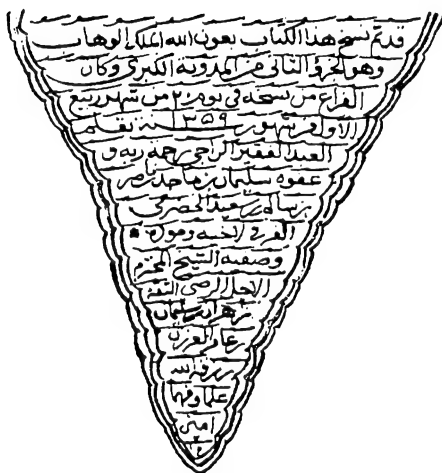 قد تم نسخ هذا الكتاب بعون الله الملك الوهاب
وهو الجزو الثاني من المدونة الكبرى وكان
الفراغ من نسخه في يوم ٢٠ من شهور ربيع
الاول من شهور ١٣٥٩ سنة بقلم
العبد الفقير الراجي رحمة ربه و
عفوه سليمان بن ماجد بن ناصر
بن سالم بن سعيد الحضرمي
لاخيه
وصفيه الشيخ المحترم
الاجل الرضي الثقة
زهران بن سليمان
بن عامر العزري
رزقه الله
علما وفهما
امين